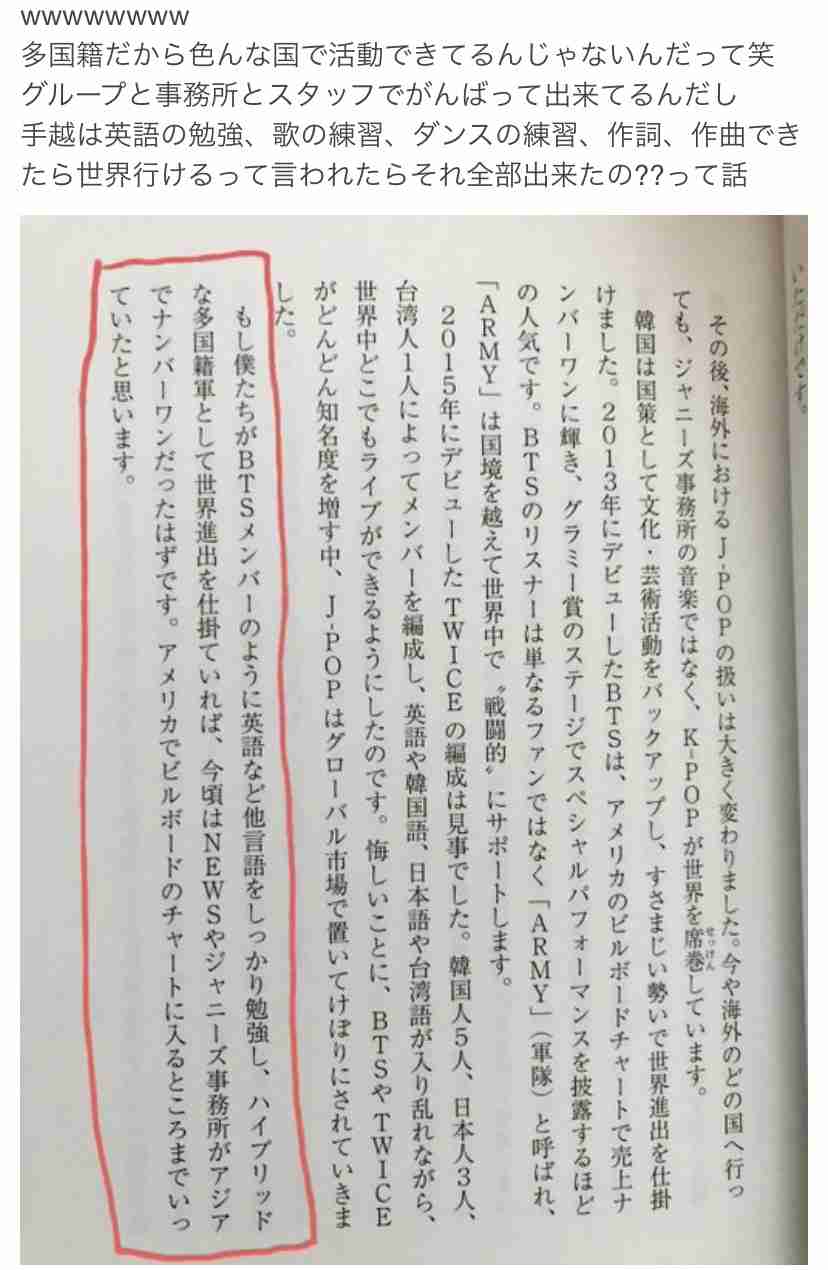 wwwwwwwww
多国籍だから色んな国で活動できてるんじゃないんだって笑
グループと事務所とスタッフでがんばって出来てるんだし
手越は英語の勉強、歌の練習、ダンスの練習、作詞、作曲でき
たら世界行けるって言われたらそれ全部出来たの??って話
その後、海外におけるJ-POPの扱いは大きく変わりました。今や海外のどの国へ行っ
ても、ジャニーズ事務所の音楽ではなく、K-POPが世界を席巻しています。
せっけん
韓国は国策として文化・芸術活動をバックアップし、すさまじい勢いで世界進出を仕掛
けました。2013年にデビューしたBTSは、アメリカのビルボードチャートで売上ナ
ンバーワンに輝き、グラミー賞のステージでスペシャルパフォーマンスを披露するほど
の人気です。BTSのリスナーは単なるファンではなく「ARMY」(軍隊)と呼ばれ、
「ARMY」は国境を越えて世界中で〝戦闘的〟にサポートします。
2015年にデビューしたTWICEの編成は見事でした。韓国人5人、日本人3人、
台湾人1人によってメンバーを編成し、英語や韓国語、日本語や台湾語が入り乱れながら、
世界中どこでもライブができるようにしたのです。悔しいことに、BTSやTWICE
がどんどん知名度を増す中、J-POPはグローバル市場で置いてけぼりにされていきま
した。
もし僕たちがBTSメンバーのように英語など他言語をしっかり勉強し、ハイブリッド
な多国籍軍として世界進出を仕掛ていれば、今頃はNEWSやジャニーズ事務所がアジア
でナンバーワンだったはずです。アメリカでビルボードのチャートに入るところまでいっ
ていたと思います。